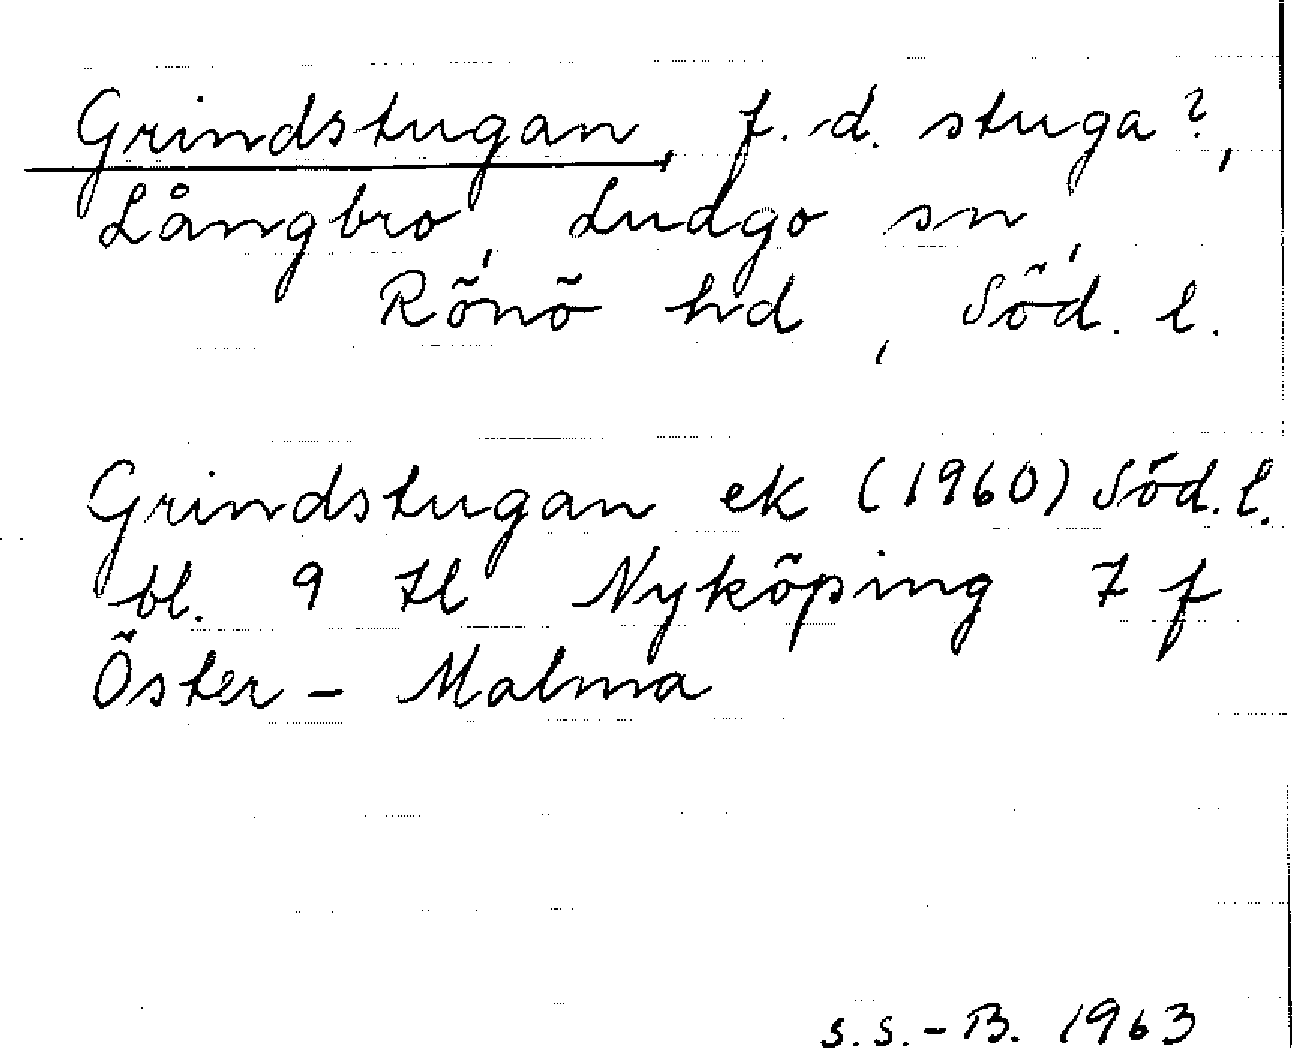 Grindstugan, f. d. stuga?,
Långbro, Ludgo sn,
Rönö hd, Söd. l.
Grindstugan ek (1960) Söd. l.
bl. 9 H Nyköping 7 f
Öster-Malma
s.s.-B. 1963